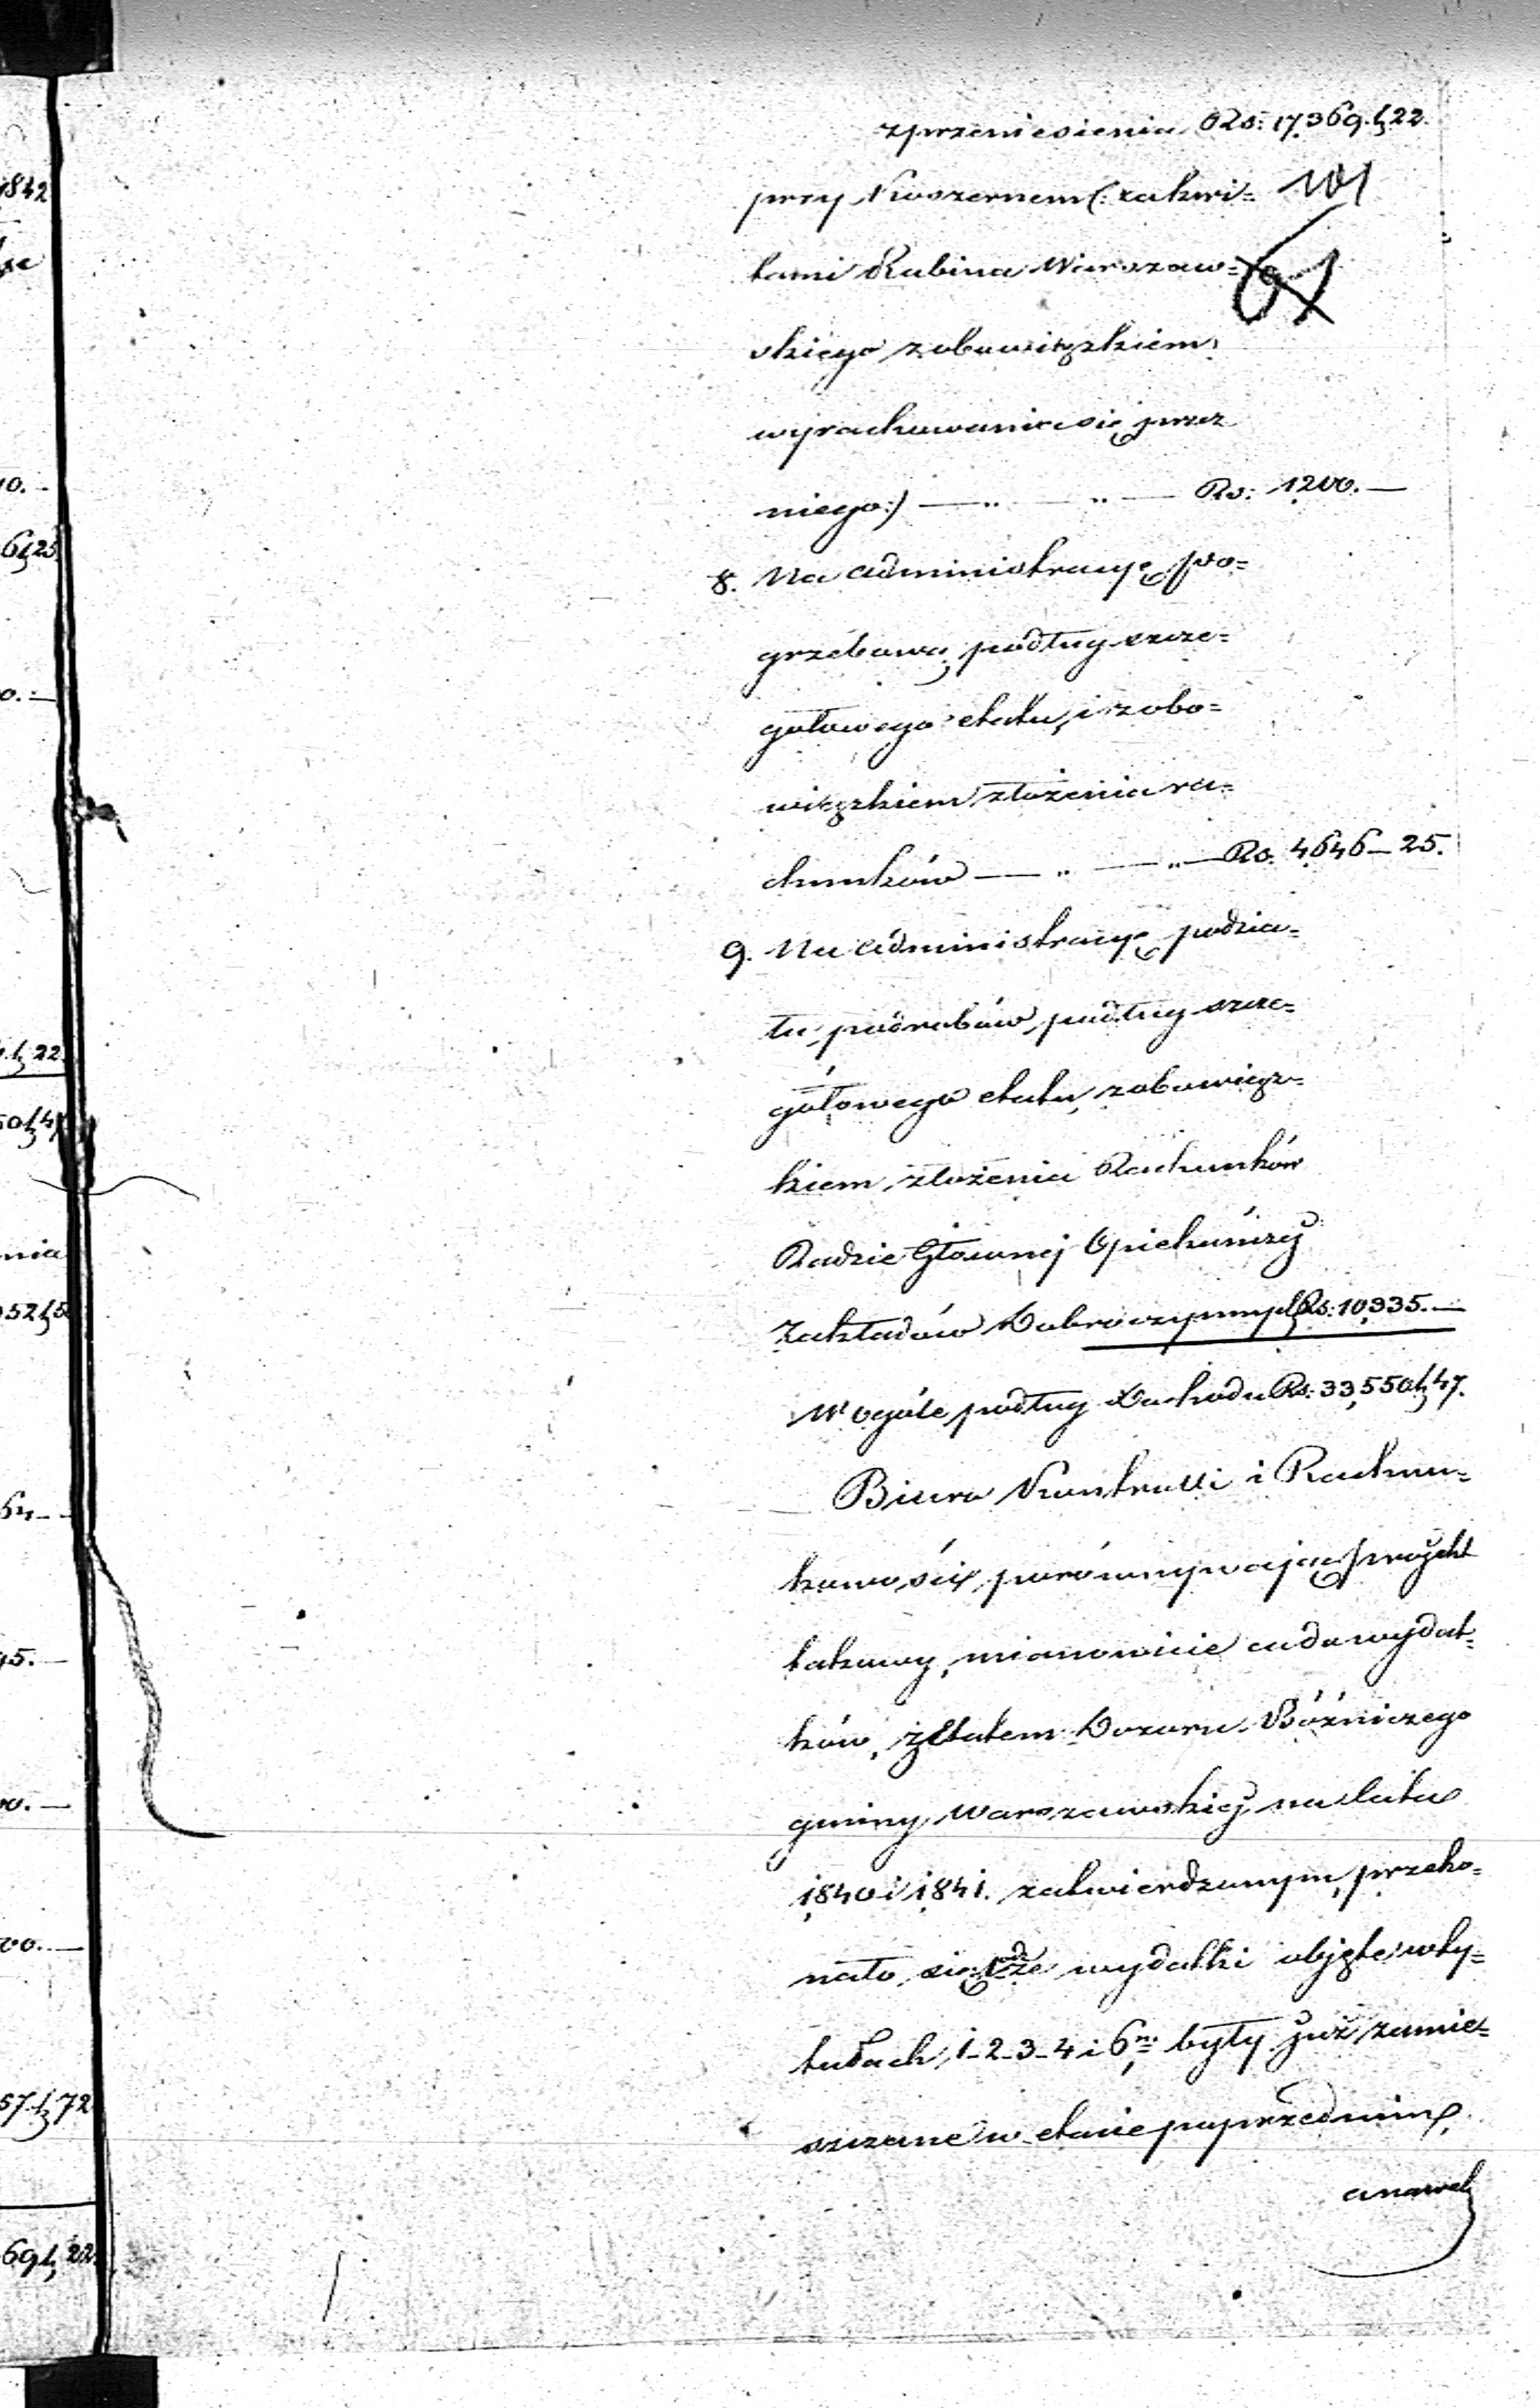 z przeniesienia Rs: 17,369. k 22.
przy Koszernem (: za kwi= 101
tami Rabina Warszaw= 61
skiego z obowiązkiem
wyrachowania się przez
niego :) — „ — „ — Rs: 1200. —
8. Na Administracyę po=
grzebową podług szcze=
gołowego etatu, i z obo=
wiązkiem złożenia ra=
chunków — „ — „ — Rs. 4646 — 25.
9. Na Administracyę podzia=
łu podrobów, podług szcze=
gółowego etatu, z obowiąz=
kiem złożenia Rachunków
Radzie Głównej Opiekuńczej
Zakładów Dobroczynnych Rs: 10,335. —
W ogóle podług Dochodu Rs: 33,550 k 47.
Biuro Kontrolli i Rachun=
kowości, porównywając projekt
takowy, mianowicie co do wydat=
ków, z Etatem Dozoru Bóźniczego
gminy Warszawskiej na lata
1840 i 1841. zatwierdzonym, przeko=
nało się, że wydatki objęte w ty=
tułach, 1-2-3-4 i 6m. były już zamie=
szczone w etacie poprzednim,
a nawet
1842
10. —
6 k 25
0. —
k 22.
50 k 4
nia
52 k 5
64 —
45. —
00. —
00. —
57. k 72
69 k 22.